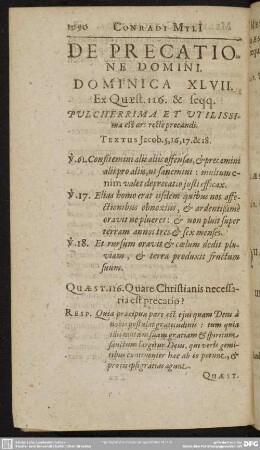 1090 CONRADI MYLI
DE PRECATIO-
NE DOMINI.
DOMINICA XLVII.
Ex Quæst. 116. & seqq.
PULCHERRIMA ET UTILISSI-
ma est ars recte precandi.
TEXTUS Jacob. 5, 16, 17, & 18.
℣. 16. Confitemini alii aliis offensas, & precamini
alii pro aliis, ut sanemini: multum e-
nim valet deprecatio justi efficax.
℣. 17. Elias homo erat iisdem quibus nos affe-
ctionibus obnoxius, & ardentißimè
oravit ne plueret: & non pluit super
terram annos tres & sex menses.
℣. 18. Et rursum oravit & cœlum dedit plu-
viam, & terra produxit fructum
suum.
QUÆST. 116. Quare Christianis necessa-
ria est precatio?
RESP. Quia præcipua pars est ejus quam Deus à
nobis postulat gratitudinis: tum quia
suam gratiam & spiritum
sanctum largitur Deus, qui veris gemi-
tibus continenter hæc ab eo petunt, &
pro iis ipsi gratias agunt.
QUÆST.
DFG